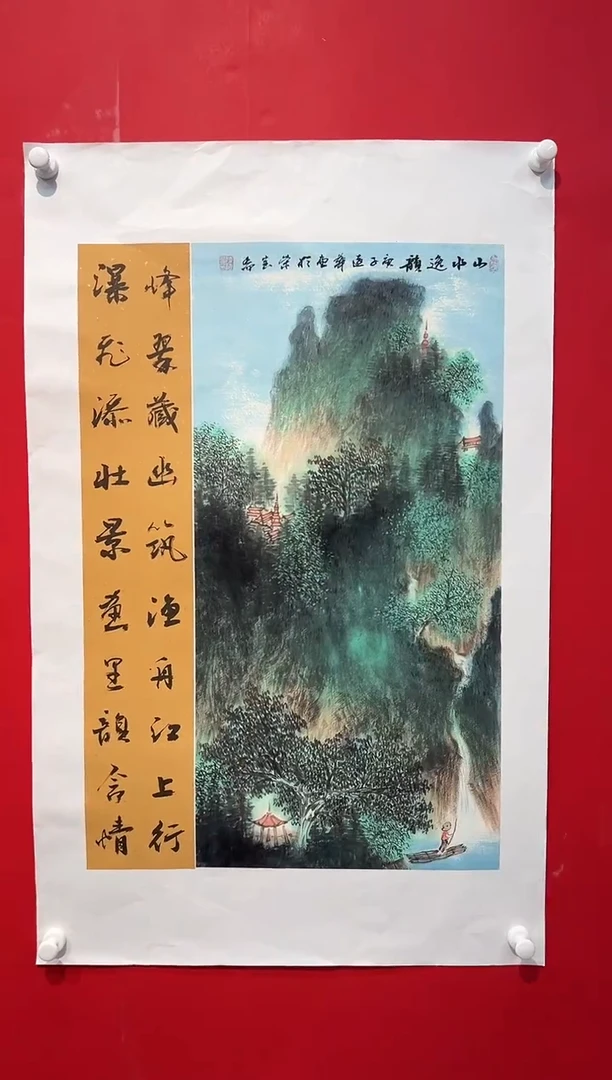 山水逸韻
峰翠藏幽筑渔舟江上行
瀑飛添壮景畫里韻含情